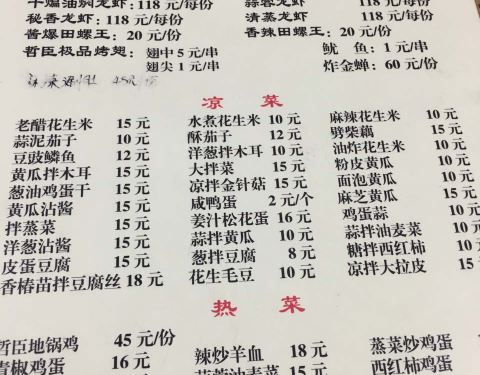 干煸油焖龙虾:118 元/每份 蒜蓉龙虾:118 元/每份
秘香龙虾:118 元/每份 清蒸龙虾:118 元/每份
酱爆田螺王:20 元/份 香辣田螺王:20 元/份
哲臣极品烤翅:翅中 5 元/串 鱿 鱼:1 元/串
翅尖 1 元/串 炸金蝉:60 元/份
凉 菜
老醋花生米 15 元 水煮花生米 10 元 麻辣花生米 10 元
蒜泥茄子 10 元 酥茄子 12 元 劈柴藕 15 元
豆豉鳞鱼 12 元 洋葱拌木耳 10 元 油炸花生米 10 元
黄瓜拌木耳 15 元 大拌菜 15 元 粉皮黄瓜 10 元
葱油鸡蛋干 15 元 凉拌金针菇 15 元 面泡黄瓜 10 元
黄瓜沾酱 15 元 咸鸭蛋 2 元/个 芝麻黄瓜 15 元
拌蒸菜 15 元 姜汁松花蛋 16 元 鸡蛋蒜 10 元
洋葱沾酱 15 元 蒜拌黄瓜 10 元 蒜拌油麦菜 10 元
皮蛋豆腐 15 元 葱拌豆腐 8 元 糖拌西红柿 10 元
香椿苗拌豆腐丝 18 元 花生毛豆 10 元 凉拌大拉皮 15 元
热 菜
哲臣地锅鸡 45 元/份 辣炒羊血 18 元 蒸菜炒鸡蛋
青椒鸡蛋 16 元 油麦菜 15 元 西红柿鸡蛋